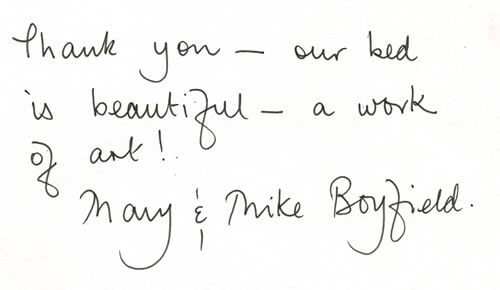 Thank you – our bed
is beautiful – a work
of art!
Mary & Mike Boyfield.